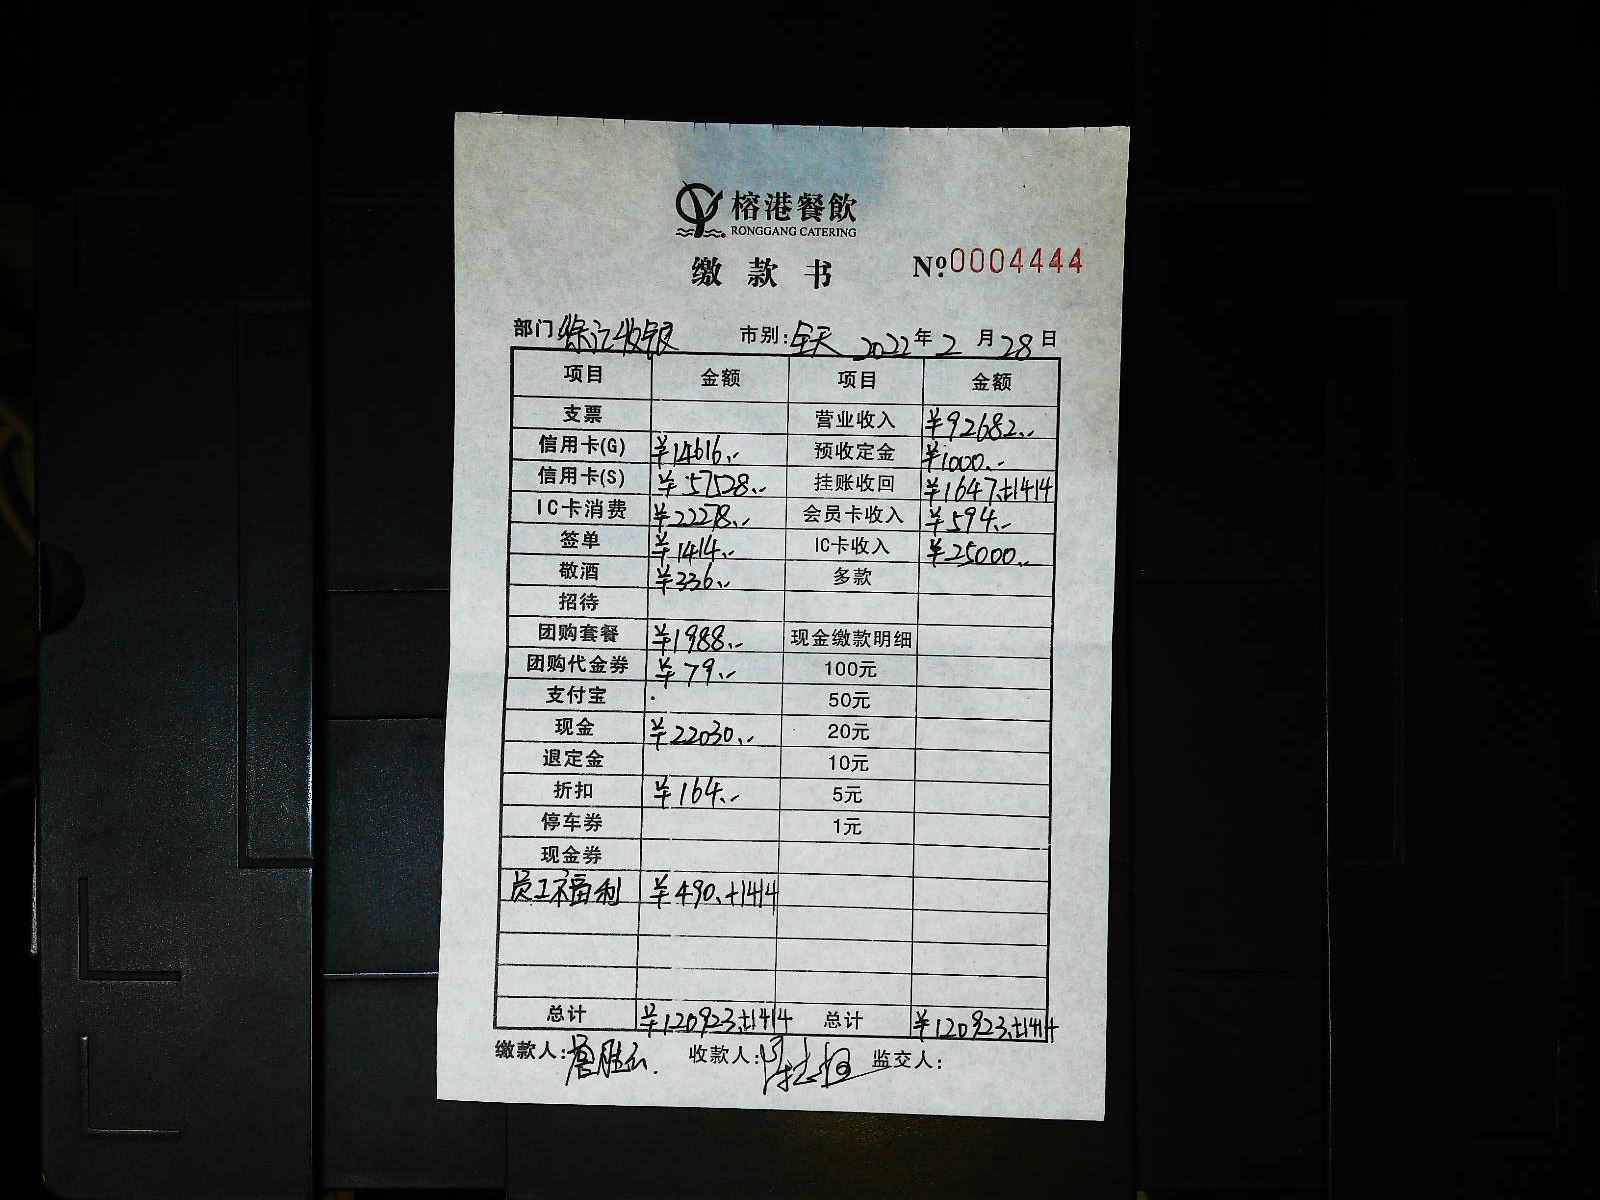 榕港餐飲
RONGGANG CATERING
缴款书 Nº.0004444
部门 徐汇收银 市别:全天 2022年2月28日
项目 金额 项目 金额
支票 营业收入 ¥92682.-
信用卡(G) ¥14616.- 预收定金 ¥1000.-
信用卡(S) ¥57528.- 挂账收回 ¥1647.+1414
IC卡消费 ¥22278.- 会员卡收入 ¥594.-
签单 ¥1414.- IC卡收入 ¥25000.-
敬酒 ¥336.- 多款
招待
团购套餐 ¥1988.- 现金缴款明细
团购代金券 ¥79.- 100元
支付宝 50元
现金 ¥22030.- 20元
退定金 10元
折扣 ¥164.- 5元
停车券 1元
现金券
员工福利 ¥490.+1414
总计 ¥120923.+1414 总计 ¥120923.+1414
缴款人: 收款人: 监交人: